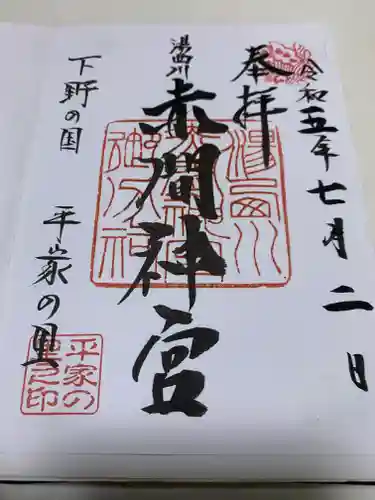 奉拝
令和五年七月二日
湯西川
赤間神宮
下野の国
平家の里
平家の里之印